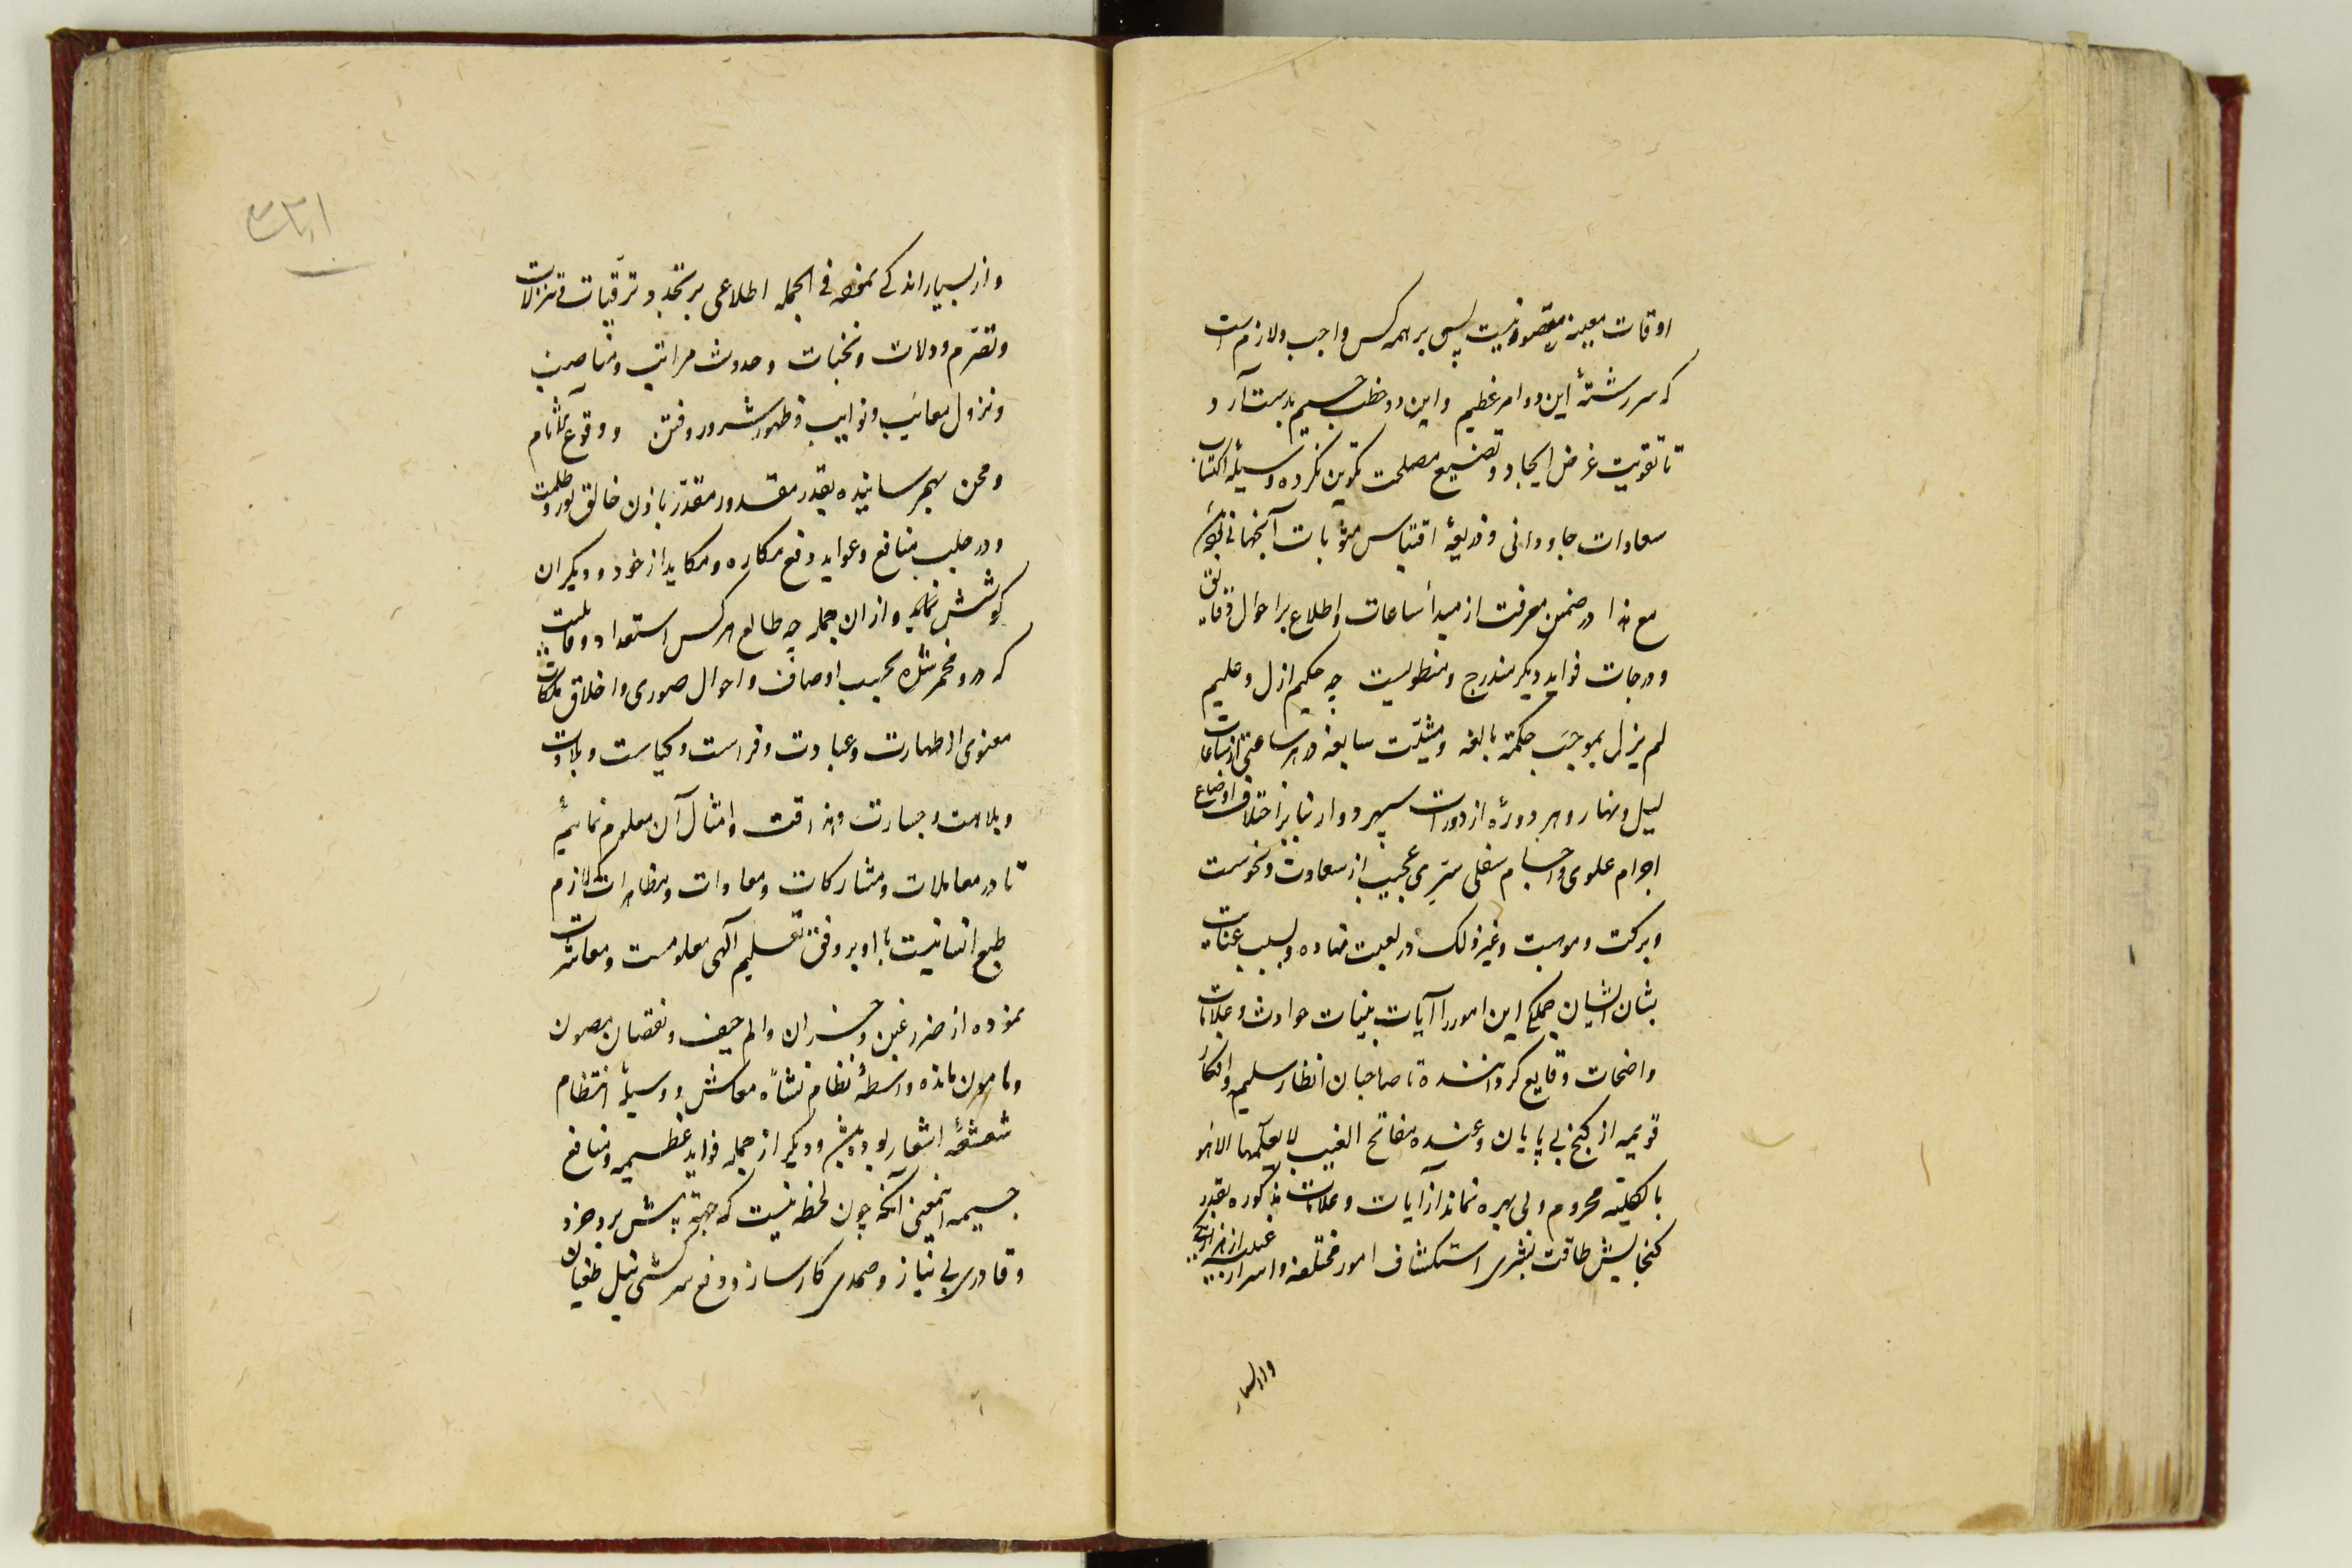 اوقات معینه مقصود نیست پس بر همه کس واجب و لازم است
که سررشتهٔ این دو امر عظیم و این دو خطب جسیم بدست آرد
تا تفویت غرض ایجاد و تضییع مصلحت تکوین نکرده وسیلهٔ اکتساب
سعادات جاودانی و ذریعهٔ اقتباس مثوبات آنجهانی
مع هذا در ضمن معرفت از مبدأ ساعات و اطلاع بر احوال دقایق
و درجات فواید دیگر مندرج و منطویست چه حکیم ازل و علیم
لم یزل بموجب حکمة بالغه و مشیّت سابغه در هر ساعتی از ساعات
لیل و نهار و هر دورهٔ از دورات سپهر دوار بنابر اختلاف اوضاع
اجرام علوی و اجسام سفلی سرّی عجیب از سعادت و نحوست
و برکت و موهبت و غیر ذلک ودیعت نهاده و بسبب عنایت
بشان ایشان جملگی این امور را آیات بینات حوادث و علامات
واضحات وقایع گردانیده تا صاحبان انظار سلیم و افکار
قویمه از گنج بی پایان و عنده مفاتح الغیب لا یعلمها الا هو
بالکلیه محروم و بی بهره نماند از آیات و علامات مذکوره بقدر
گنجایش طاقت بشری استکشاف امور مختلفه و اسرار غیبیه
واز بسیار
۳۳۱
و از بسیار اندکی نموده فی الجمله اطلاعی بر تجدد ترقیات و تنزلات
و تصرّم دولات و نخبات و حدوث مراتب و مناصب
و نزول معایب و نوایب و ظهور شرور و فتن و وقوع آثام
و محن بهم رسانیده بقدر مقدور مقدّر باذن خالق نور و ظلمت
و در جلب منافع و عواید و دفع مکاره و مکاید از خود و دیگران
کوشش نماید و ازان جمله چه طالع هر کس استعداد و قابلیت
که در و مخمر شده بحسب اوصاف و احوال صوری و اخلاق و ملکات
معنوی از طهارت و عبادت و فراست و کیاست و بلادت
و بلاهت و جسارت و حذاقت و امثال آن معلوم نمائیم
تا در معاملات و مشارکات و معادات و مظاهرات که لازم
طبع انسانیست با او بر وفق تعلیم آلهی معاملت و معاشرت
نموده از ضرر غبن و خسران و الم حیف و نقصان مصون
و مامون مانده واسطهٔ نظام نشاه معاش و وسیلهٔ انتظام
شعشعهٔ و دیگر از جمله فواید عظیمه و منافع
جسیمه اینمعنی آنکه چون لحظه نیست که جهة پیش برد خرد
و قادر بی نیاز و صمدی کارساز و دفع سرکشی نیل طغیان